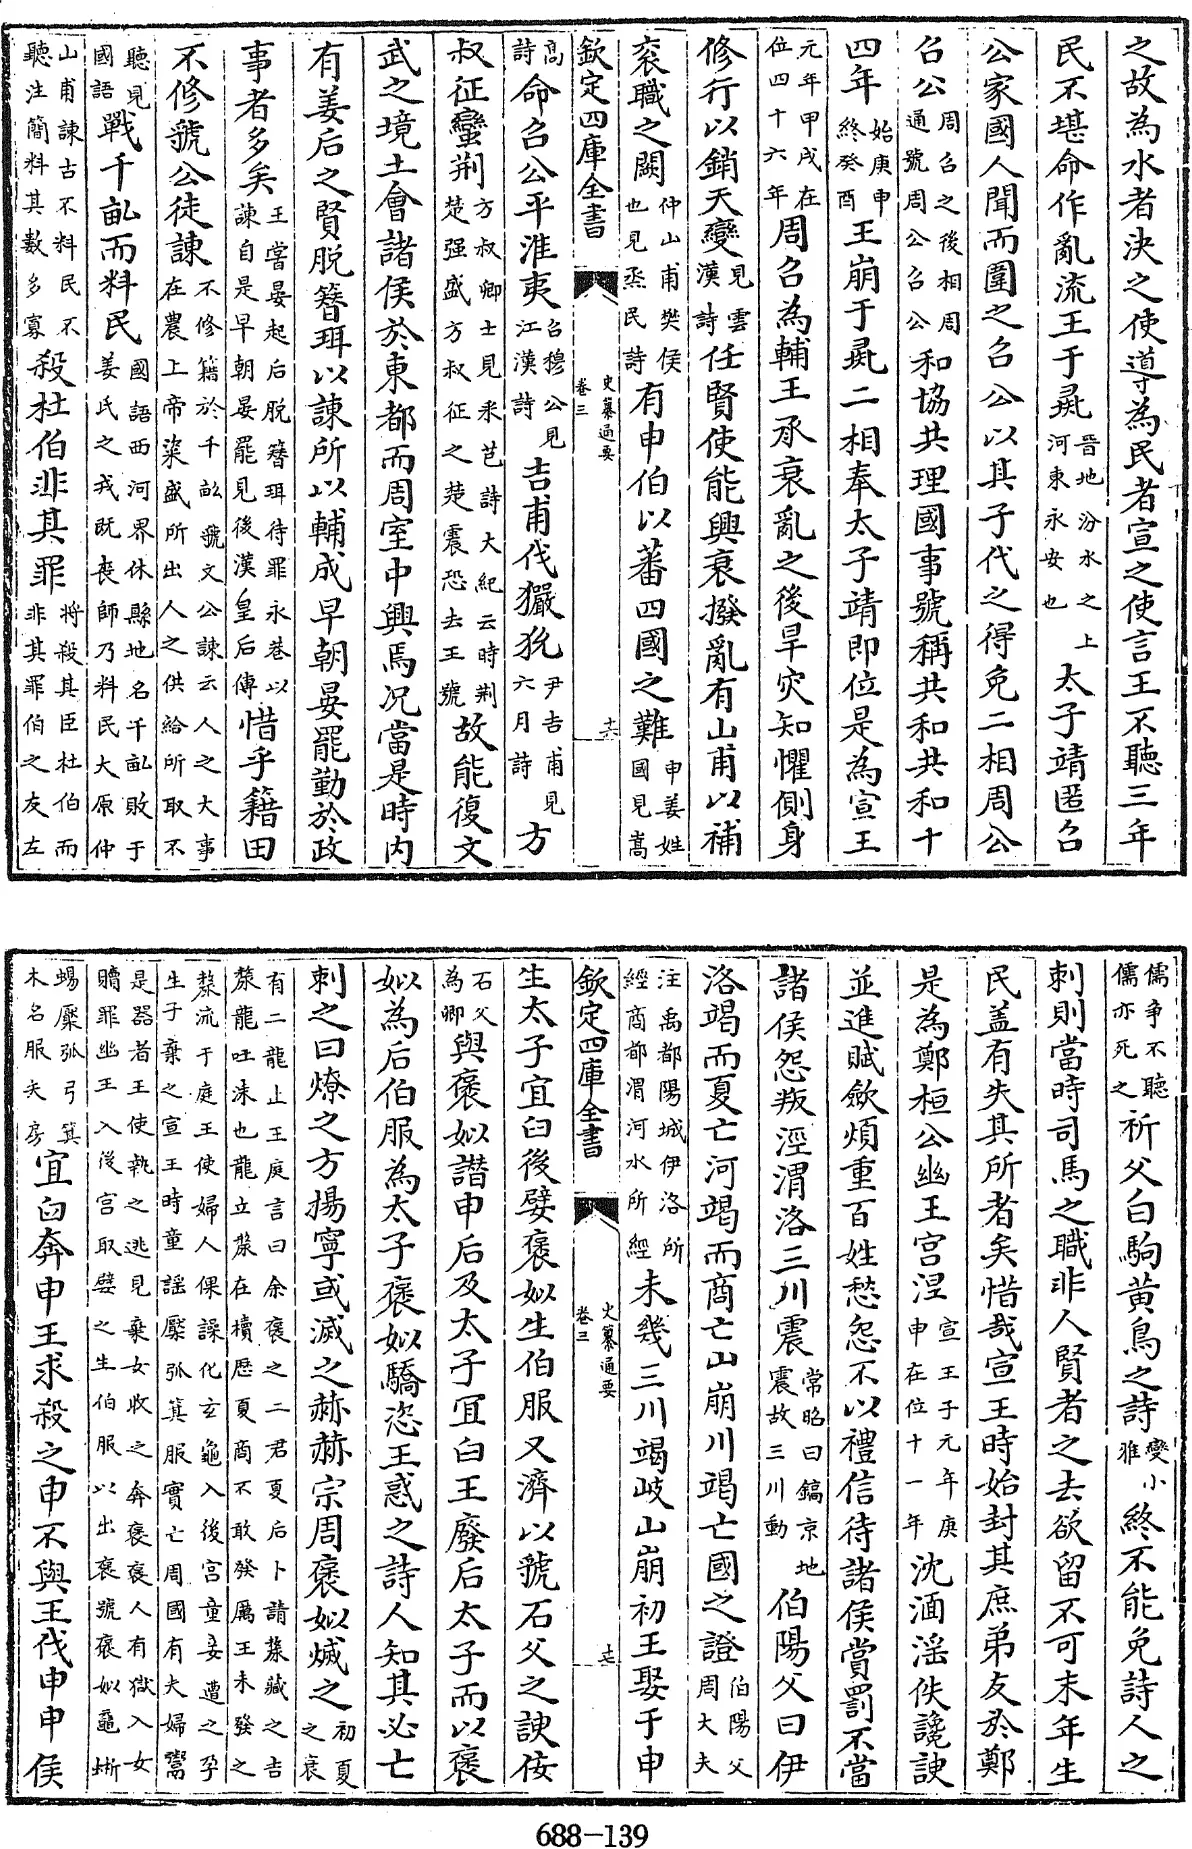 之故為水者決之使導為民者宣之使言王不聽三年
民不堪命作亂流王于彘晉地汾水之上河東永安也太子靖匿召
公家國人聞而圍之召公以其子代之得免二相周公
召公周召之後相周通號周公召公和協共理國事號稱共和共和十
四年始庚申終癸酉王崩于彘二相奉太子靖即位是為宣王
元年甲戌在位四十六年周召為輔王承衰亂之後旱灾知懼側身
修行以銷天變見雲漢詩任賢使能興衰撥亂有山甫以補
衮職之闕仲山甫樊侯也見烝民詩有申伯以蕃四國之難申姜姓國見嵩
欽定四庫全書 史纂通要 卷三 十六
高詩命召公平淮夷召穆公見江漢詩吉甫伐玁狁尹吉甫見六月詩方
叔征蠻荆方叔卿士見采芑詩大紀云時荆楚强盛方叔征之楚震恐去王號故能復文
武之境土會諸侯於東都而周室中興焉况當是時内
有姜后之賢脱簪珥以諫所以輔成早朝晏罷勤於政
事者多矣王嘗晏起后脱簪珥待罪永巷以諫自是早朝晏罷見後漢皇后傳惜乎籍田
不修虢公徒諫不修籍於千畝虢文公諫云人之大事在農上帝粢盛所出人之供給所取不
聽見國語戰千畝而料民國語西河界休縣地名千畝敗于姜氏之戎既喪師乃料民大原仲
山甫諫古不料民不聽注簡料其數多寡殺杜伯非其罪將殺其臣杜伯而非其罪伯之友左
儒争不聽儒亦死之祈父白駒黄鳥之詩變小雅終不能免詩人之
刺則當時司馬之職非人賢者之去欲留不可末年生
民盖有失其所者矣惜哉宣王時始封其庶弟友於鄭
是為鄭桓公幽王宫湼宣王子元年庚申在位十一年沈湎淫佚讒諛
並進賦歛煩重百姓愁怨不以禮信待諸侯賞罰不當
諸侯怨叛涇渭洛三川震常昭曰鎬京地震故三川動伯陽父曰伊
洛竭而夏亡河竭而商亡山崩川竭亡國之證伯陽父周大夫
注禹都陽城伊洛所經商都渭河水所經未幾三川竭岐山崩初王娶于申
欽定四庫全書 史纂通要 卷三 十七
生太子宜臼後嬖褒姒生伯服又濟以虢石父之諛佞
石父為卿與褒姒譖申后及太子宜臼王廢后太子而以褒
姒為后伯服為太子褒姒驕恣王惑之詩人知其必亡
刺之曰燎之方揚寧或滅之赫赫宗周褒姒烕之初夏之衰
有二龍止王庭言曰余褒之二君夏后卜請漦藏之吉漦龍吐沫也龍立漦在櫝歷夏商不敢發厲王末發之
漦流于庭王使婦人倮譟化玄黿入後宫童妾遭之孕生子棄之宣王時童謡檿弧箕服實亡周國有夫婦鬻
是器者王使執之逃見棄女收之奔褒褒人有獄入女贖罪幽王入後宫取嬖之生伯服以出褒號褒姒黿蜥
蜴檿弧弓箕木名服矢房宜臼奔申王求殺之申不與王伐申申侯
688-139